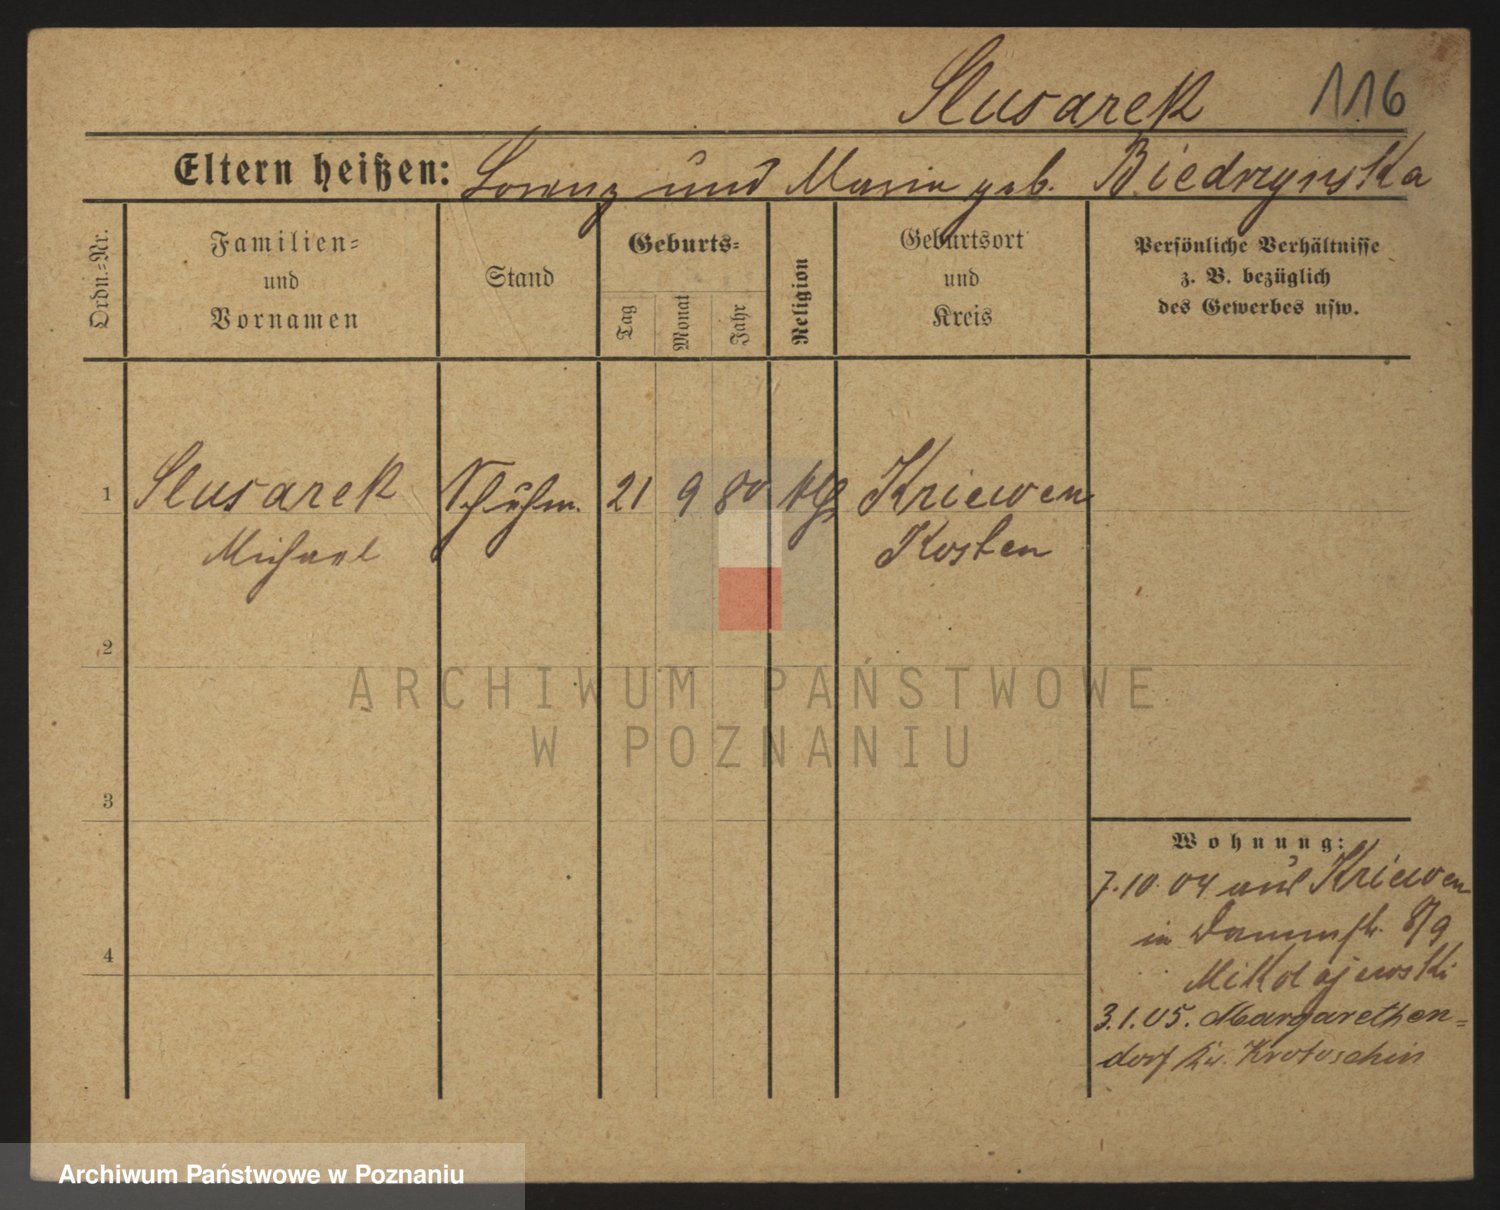 Slusarek 116
Eltern heißen: Lorenz und Maria geb. Biedrzynska
Ordn.-Nr.
Familien-
und
Vornamen
Stand
Geburts-
Tag
Monat
Jahr
Religion
Geburtsort
und
Kreis
Persönliche Verhältnisse
z. B. bezüglich
des Gewerbes usw.
1 Slusarek Schuhm. 21 9 80 kth Kriewen
Michael Kosten
2
3
4
Wohnung:
7.10.04 aus Kriewen
in Dammstr. 8/9
Mikolajewski
3.1.05. Margarethen-
dorf Kr. Krotoschin
ARCHIWUM PAŃSTWOWE
W POZNANIU
Archiwum Państwowe w Poznaniu